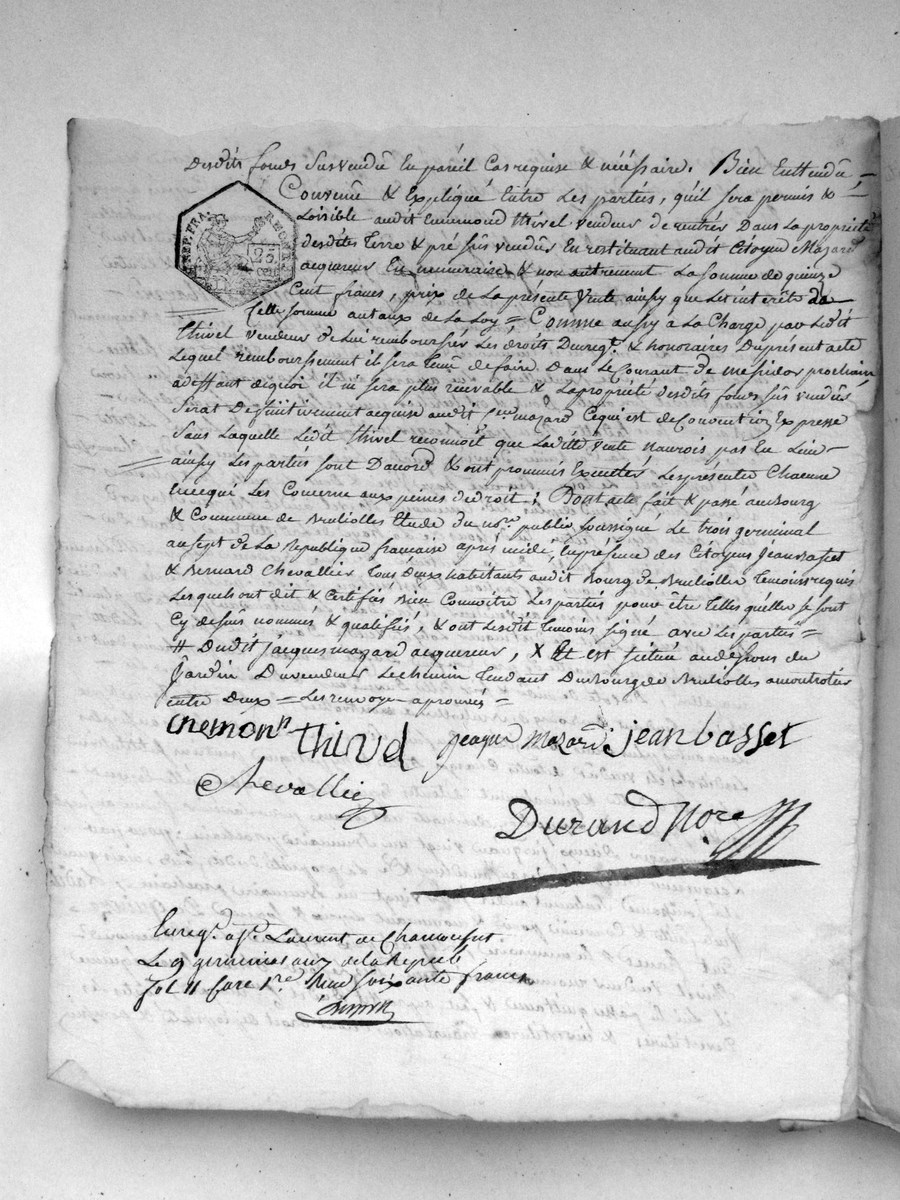 Desdits fonds susvendu en pareil cas requise & nécéssaire. Bien Entendu
Convenû & Expliqué Entre Les parties, quil sera permis &
Loisible audit Ennemond thivel vendeur de rentrér Dans La proprieté
desdites terre & pré sûs vendûs En restituant audit Citoyen Mazard
acquereur En numeraire & non autrement La somme de quinze
Cent francs, prix de La présente Vente ainsy que Les interéts de
telle somme au taux de La Loy = Comme aussy a La Charge par Ledit
thivel vendeur de Lui remboursér Les droits Dureg.t & honoraires Duprésent acte
Lequel remboursement il sera tenu de faire Dans Le Courant de messidor prochain
a deffaut dequoi il ne sera plus recevable & La proprieté desdits fonds sûs vendûs
Serat Definitivement acquise audit mazard Cequi est de Convention Expresse
Sans Laquelle Ledit thivel reconnoit que Ladite vente nauroit pas Eu Lieu =
ainsy Les parties sont Dacord & ont prommis Executer Les présentes Chacune
Encequi Les Concerne aux peines de droit; Dont acte fait & passé au Bourg
& Commune de Brulliolles Etude du no.re public soussigné Le trois germinal
an sept de La republique francaise aprés midé, En présence des Citoyens Jean Basset
& Bernard Chevallier tous deux habitants audit Bourg de Brulliolles temoins requis
Lesquels ont dit & Certifiés Bien Connoitre Les parties pour être telles quelles se sont
Cy dessûs nommés & qualifiés, & ont Lesdits temoins signé avec Les parties =
# Dudit jacques mazard acquereur, X Et est située audessous du
Jardin Duvendeur Le chemin tendant Dubourg de Brulliolles
entre Deux = Les renvoys aprouvés =
REP. FRA.
25
Cen
thivel jeaque mazard jean basset
chevallier
Durand No.re
Enreg. a S.t Laurent de Chamousset
Le 9 germinal an 7 de la Repub
fol 11 Case 1.re Recu soixante francs